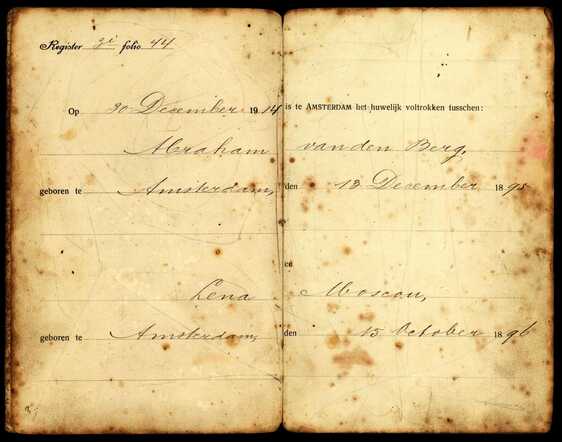 Register 3i folio 44
Op 30 December 1914 is te AMSTERDAM het huwelijk voltrokken tusschen:
Abraham van den Berg,
geboren te Amsterdam, den 13 December 1895
en
Lena Moscou,
geboren te Amsterdam, den 15 October 1896